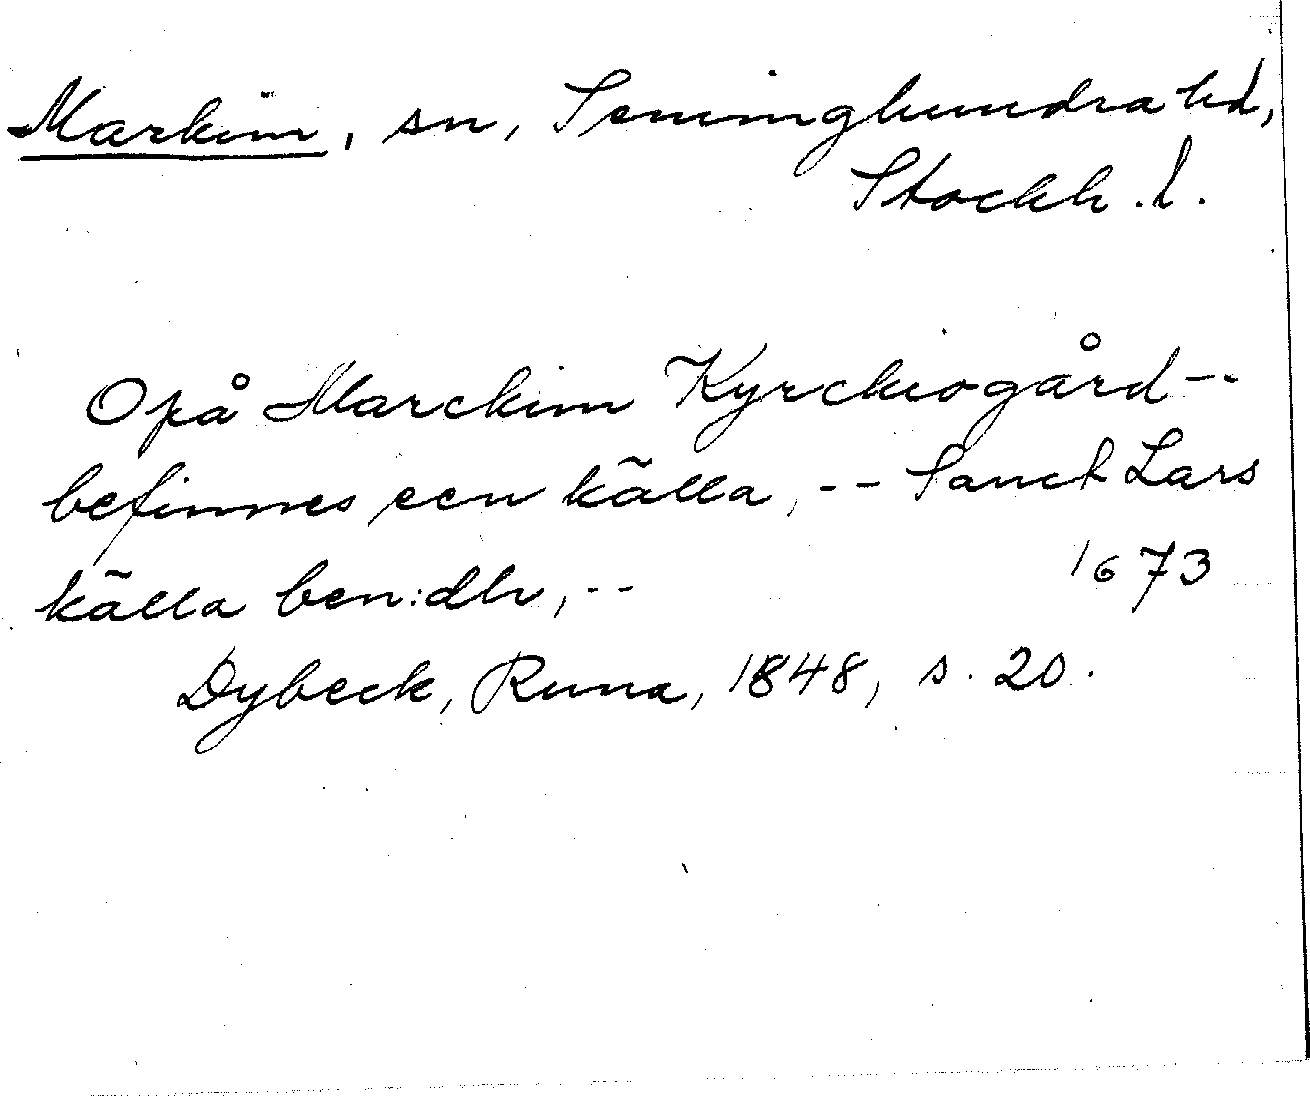 Markim, sn, Seminghundra hd,
Stockh. l.
Opå Marckim Kyrckiogård --
befinnes een källa, -- Sanct Lars
källa ben:dh, -- 1673
Dybeck, Runa, 1848, s. 20.